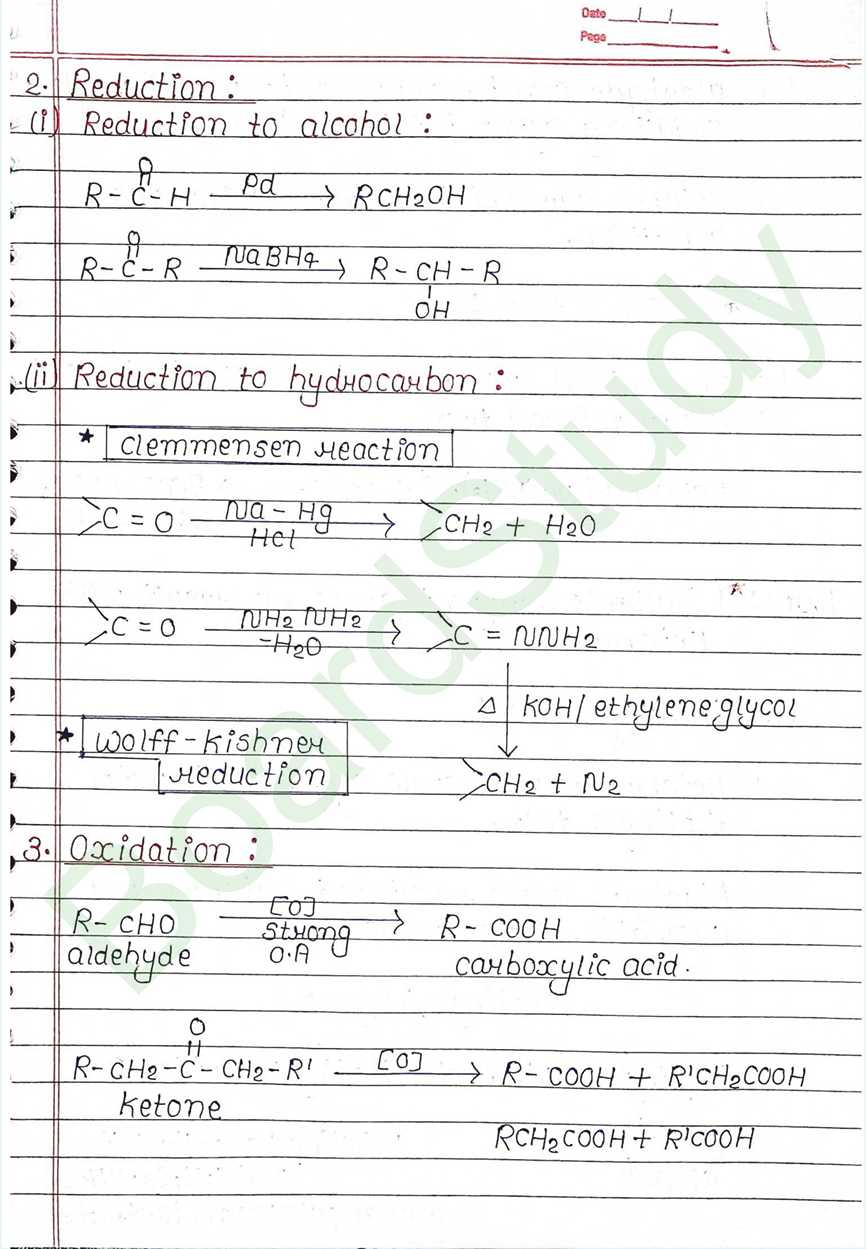 Date
Page
2. Reduction :
(i) Reduction to alcohol :
O
R - C - H Pd → RCH2OH
O
R - C - R NaBH4 → R - CH - R
OH
(ii) Reduction to hydrocarbon :
* Clemmensen reaction
>C = O Na - Hg → >CH2 + H2O
HCl
>C = O NH2 NH2 → >C = NNH2
-H2O
Δ KOH/ ethylene glycol
* Wolff - Kishner
reduction >CH2 + N2
3. Oxidation :
R - CHO [O] → R - COOH
strong
aldehyde O.A carboxylic acid.
O
R - CH2 - C - CH2 - R' [O] → R - COOH + R'CH2COOH
Ketone
RCH2COOH + R'COOH
BoardStudy